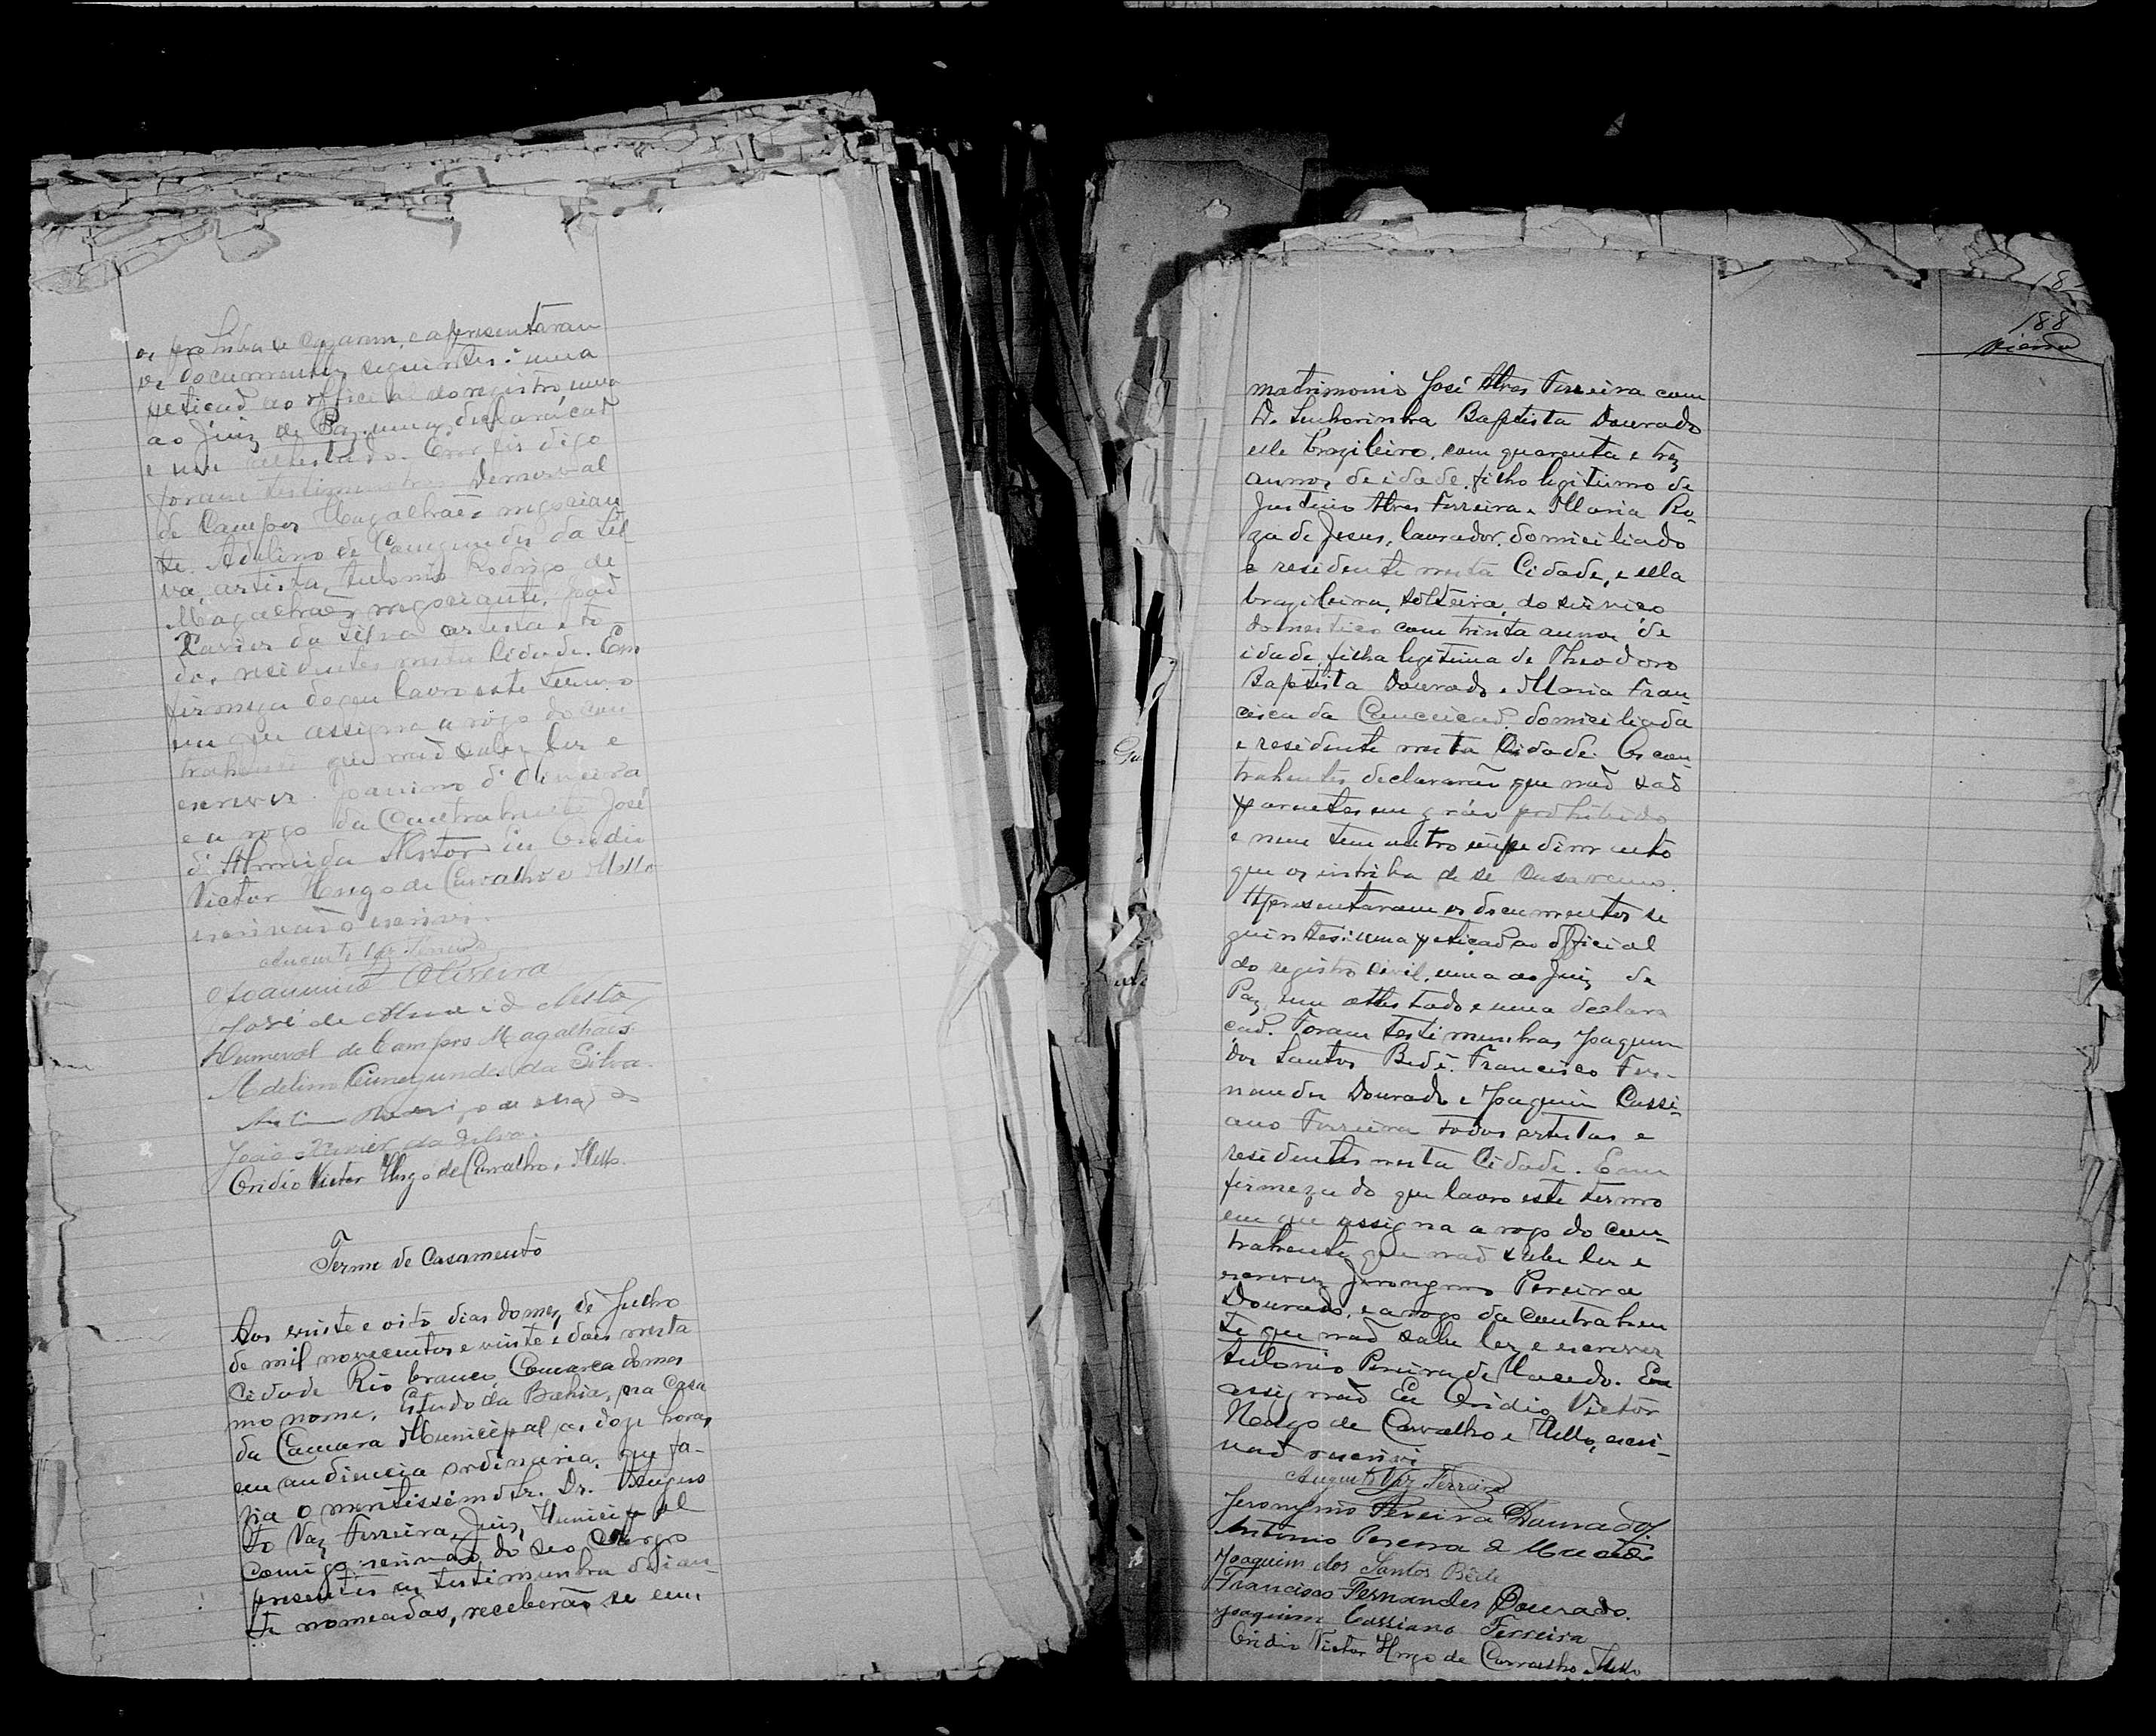 os prohiba se cazarem, e apresentaram
os documentos seguintes: uma
peticaõ ao official do registro, uma
ao Juiz de Paz, uma declaracaõ
e um attestado. Em fis digo
foram testimunhas Demerval
de Campos Magalhães negocian
te, Adelino de Cunegundes da Sil-
va, artista, Antonio Rodrigo de
Magalhães negociante, Joaõ
Xavier da Silva artista e to
dos residentes nesta Cidade. Em
firmeza do que lavro este termo
em que assigna a rogo do con
trahente que naõ sabe ler e
escrever Joanino d'Oliveira
e a rogo da Contrahente José
d'Almeida Nestor eu Ovidio
Victor Hugo de Carvalho e Mello
escrivaõ escrivi.
Augusto Vaz Ferreira
Joannino Oliveira
José de Almeida Nestor
Demerval de Campos Magalhães
Adelino Cunegundes da Silva.
Antonio Rodrigo de Mag
João Xavier da Silva.
Ovidio Victor Hugo de Carvalho e Mello.
Termo de Casamento
Aos vinte e oito dias do mez de Julho
de mil novecentos e vinte e dois nesta
Cidade Rio branco, Comarca do mes
mo nome, Estado da Bahia, na Casa
da Camara Municipal as doze horas,
em audiencia ordinaria, que fa-
zia o meritissimo Sr. Dr. Augus
to Vaz Ferreira, Juiz Municipal
comigo escrivaõ do seo Cargo
presentes as testimunhas dian
te nomeadas, receberão se em,
188
matrimonio José Alves Ferreira com
D. Senhorinha Baptista Dourado
elle brazileiro, com quarenta e trez
annos de idade, filho legitimo de
Justino Alves Ferreira e Maria Ro-
za de Jesus, lavrador, domiciliado
e residente nesta Cidade, e ella
brazileira, solteira, do serviço
domestico com trinta annos de
idade, filha legitima de Theodoro
Baptista Dourado e Maria Fran-
cisca da Conceicaõ domiciliada
e residente nesta Cidade. Os con-
trahentes declararão que naõ saõ
parentes em gráu prohibido
e nem tem outro impedimento
que os inhiba de se casaremo.
Apresentaram os documentos se
guintes: uma peticaõ ao official
do registro civil, uma ao Juiz de
Paz, um attestado e uma declara
caõ. Foram testimunhas Joaquim
dos Santos Bedê, Francisco Fer-
nandes Dourado e Joaquim Cassi-
ano Ferreira todos artistas e
residentes nesta Cidade. E em
firmeza do que lavro este termo
em que assigna a rogo do con-
trahente que naõ sabe ler e
escrever Jeronymo Pereira
Dourado, e a rogo da Contrahen
te que naõ sabe ler e escrever
Antonio Pereira de Macedo. Eu
assignaõ Eu Ovidio Victor
Hugo de Carvalho e Mello, escri-
vaõ escrivi
Augusto Vaz Ferreira
Jeronymo Pereira Dourado.
Antonio Pereira de Macedo
Joaquim dos Santos Bêde
Francisco Fernandes Dourado.
Joaquim Cassiano Ferreira
Ovidio Victor Hugo de Carvalho e Mello